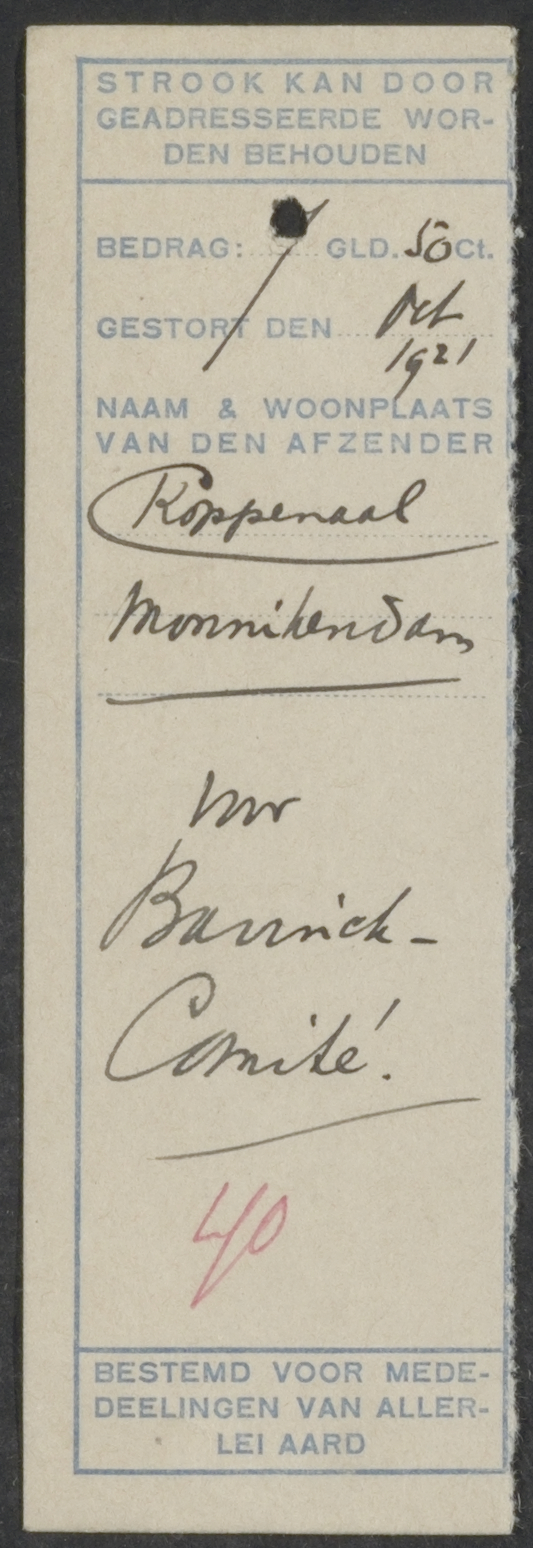 STROOK KAN DOOR
GEADRESSEERDE WOR-
DEN BEHOUDEN
BEDRAG: GLD. 50 Ct.
GESTORT DEN Oct
1921
NAAM & WOONPLAATS
VAN DEN AFZENDER
Koppenaal
Monnikendam
voor
Bavinck-
Comité.
40
BESTEMD VOOR MEDE-
DEELINGEN VAN ALLER-
LEI AARD